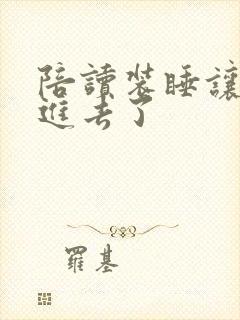 陪讀裝睡讓
進去了
羅基